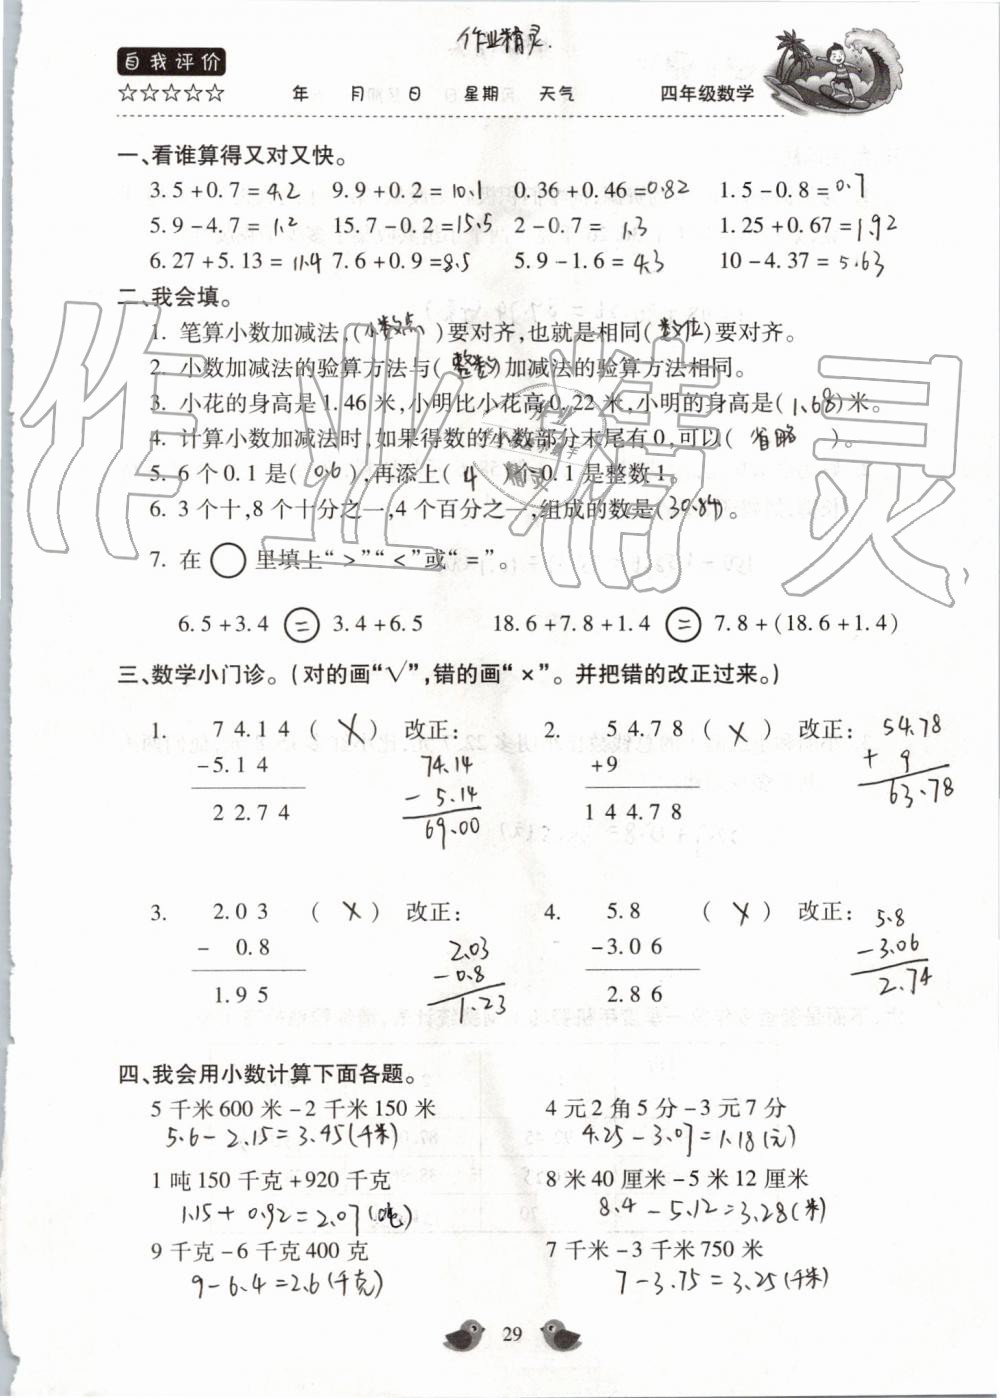 作业精灵.
自我评价
☆☆☆☆☆ 年 月 日 星期 天气 四年级数学
一、看谁算得又对又快。
3.5+0.7=4.2 9.9+0.2=10.1 0.36+0.46=0.82 1.5-0.8=0.7
5.9-4.7=1.2 15.7-0.2=15.5 2-0.7=1.3 1.25+0.67=1.92
6.27+5.13=11.4 7.6+0.9=8.5 5.9-1.6=4.3 10-4.37=5.63
二、我会填。
1. 笔算小数加减法,(小数点)要对齐,也就是相同(数位)要对齐。
2. 小数加减法的验算方法与(整数)加减法的验算方法相同。
3. 小花的身高是1.46米,小明比小花高0.22米,小明的身高是(1.68)米。
4. 计算小数加减法时,如果得数的小数部分末尾有0,可以(省略)。
5. 6个0.1是(0.6),再添上(4)个0.1是整数1。
6. 3个十,8个十分之一,4个百分之一,组成的数是(30.84)。
7. 在○里填上“>”“<”或“=”。
6.5+3.4 = 3.4+6.5 18.6+7.8+1.4 = 7.8+(18.6+1.4)
三、数学小门诊。(对的画“√”,错的画“×”。并把错的改正过来。)
1. 74.14 (×) 改正: 2. 54.78 (×) 改正: 54.78
-5.14 74.14 +9 + 9
- 5.14 63.78
22.74 69.00 144.78
3. 2.03 (×) 改正: 4. 5.8 (×) 改正: 5.8
- 0.8 2.03 -3.06 -3.06
-0.8 2.74
1.95 1.23 2.86
四、我会用小数计算下面各题。
5千米600米-2千米150米 4元2角5分-3元7分
5.6-2.15=3.45(千米) 4.25-3.07=1.18(元)
1吨150千克+920千克 8米40厘米-5米12厘米
1.15+0.92=2.07(吨) 8.4-5.12=3.28(米)
9千克-6千克400克 7千米-3千米750米
9-6.4=2.6(千克) 7-3.75=3.25(千米)
29
作业精灵